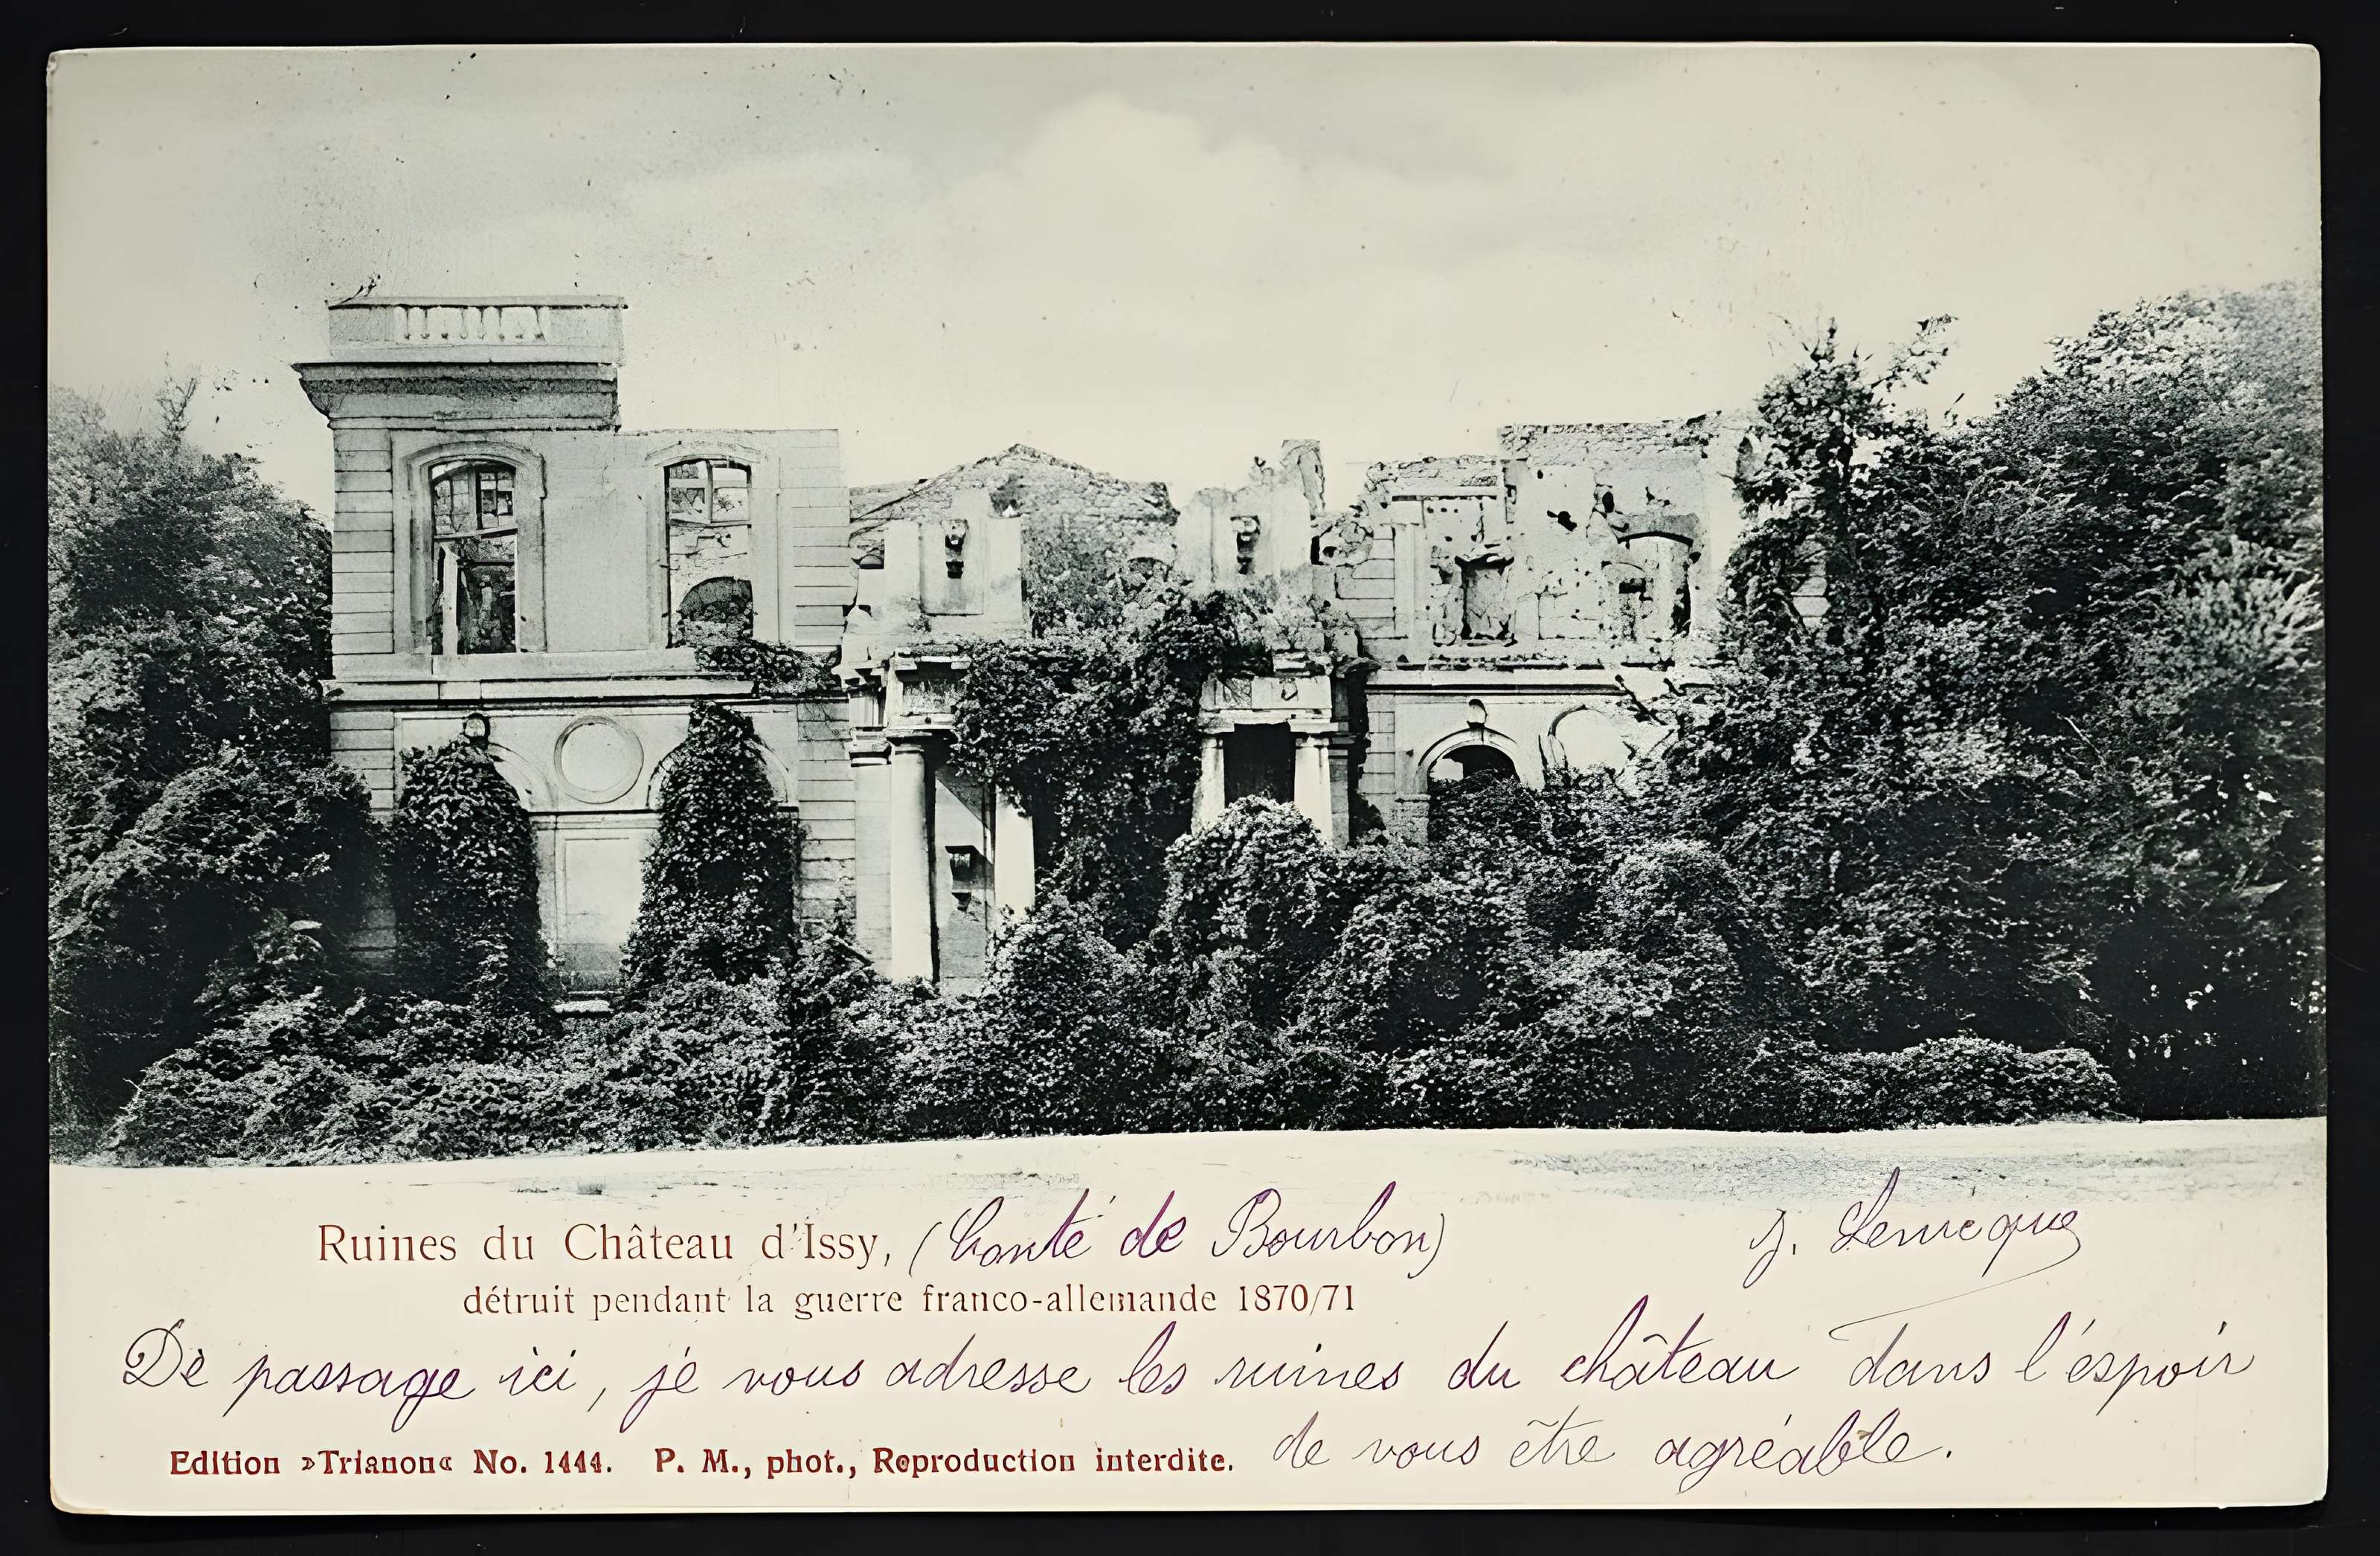 Ruines du Château d'Issy, (Conté de Bourbon)
J.
détruit pendant la guerre franco-allemande 1870/71
De passage ici, je vous adresse les ruines du château dans l'éspoir
de vous être agréable.
Edition »Trianon« No. 1444. P. M., phot., Reproduction interdite.